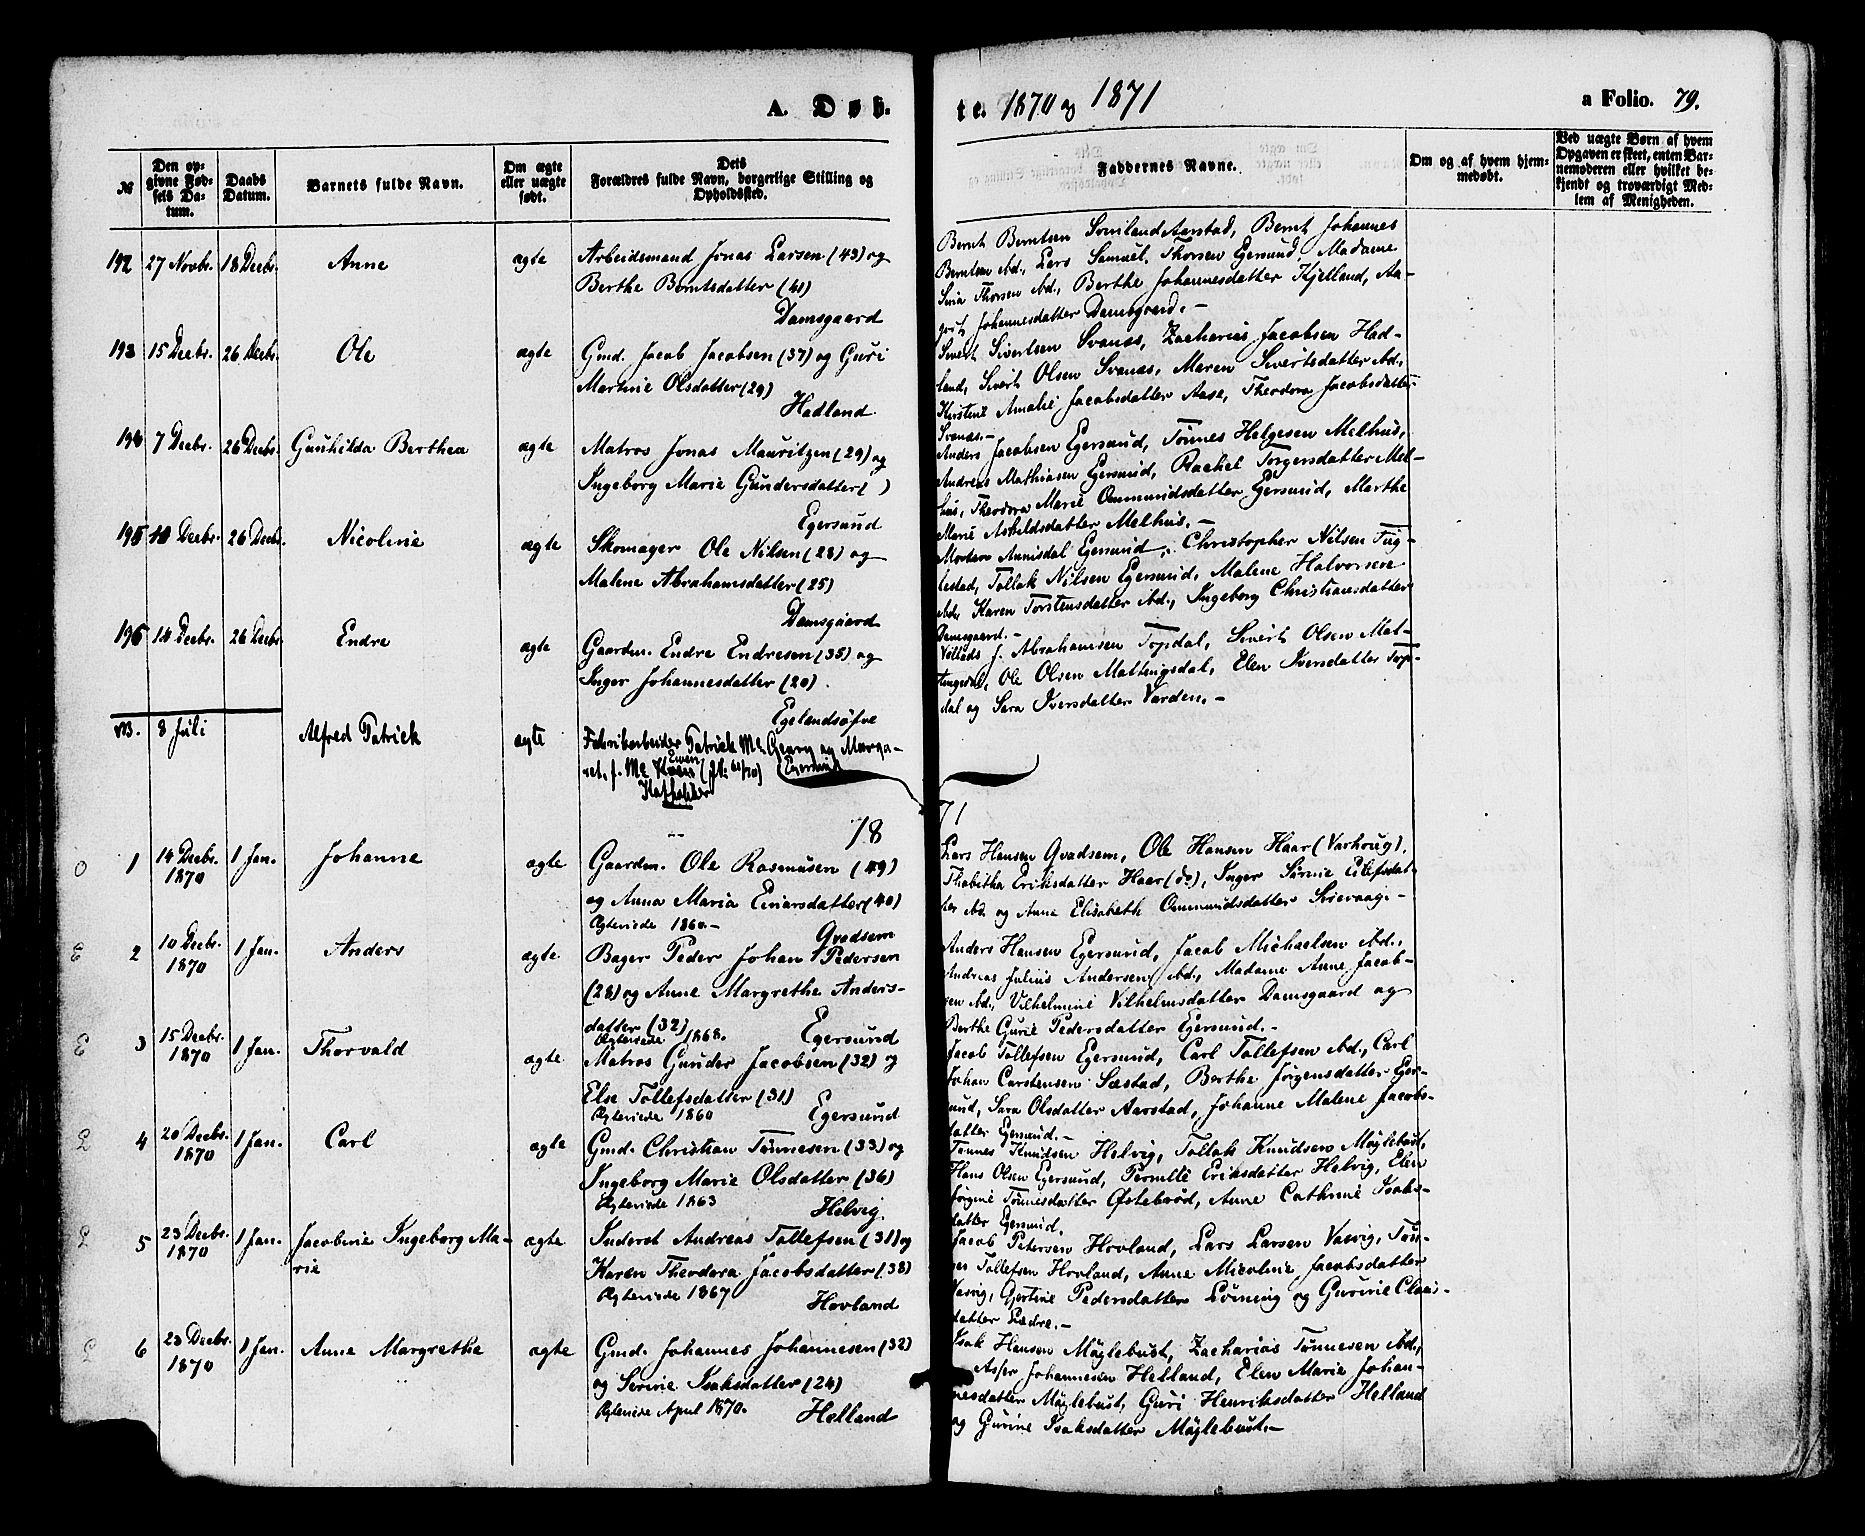 A. Døb.
te. 1870 og 1871
a Folio. 79.
№
Den opgivne Fødsels Datum.
Daabs Datum.
Barnets fulde Navn.
Om ægte eller uægte født.
Dets Forældres fulde Navn, borgerlige Stilling og Opholdssted.
Faddernes Navne.
Om og af hvem hjemmedøbt.
Ved uægte Børn af hvem Opgaven er skeet, enten Barnemoderen eller hvilket bekjendt og troværdigt Medlem af Menigheden.
192 27 Novbr. 18 Decbr. Anne ægte
Arbeidsmand Jonas Larsen (43) og
Berthe Berntsdatter (41)
Damsgaard
Bernt Berntsen Aarstad, Bernt Johannes
Berntsen ibd., Lars Samuel. Thorsen Egersund, Madame
Thorsen ibd., Berthe Johannesdatter Kjelland, Aa-
Johannesdatter Damsgaard.-
193 15 Decbr. 26 Decbr. Ole ægte
Gmd. Jacob Jacobsen (37) og Guri
Martine Olsdatter (29)
Hadland.
Sivert Sivertsen Svanæs, Zacharias Jacobsen Had-
land, Sivert Olsen Svanæs, Maren Sivertsdatter ibd.,
Kirstine Amalie Jacobsdatter Aase, Theodora Jacobsdatter
Svanæs.-
194 7 Decbr. 26 Decbr. Gunhilda Berthea ægte
Matros Jonas Mauritzen (29) og
Ingeborg Marie Gundersdatter ( )
Egersund
Anders Jacobsen Egersund, Tönnes Helgesen Melhus,
Andreas Mathiasen Egersund, Rachel Torgersdatter Mel-
hus, Theodora Marie Ommundsdatter Egersund, Marthe
Marie Melhus.-
195 10 Decbr. 26 Decbr. Nicoline ægte
Skomager Ole Nilsen (28) og
Malene Abrahamsdatter (25)
Damsgaard
Egersund, Christopher Nilsen Fug-
lestad, Tollak Nilsen Egersund, Malene Halvorsen
ibd., Karen Torstensdatter ibd., Ingeborg Christiansdatter
Damsgaard.-
196 14 Decbr. 26 Decbr. Endre ægte
Gaardm. Endre Endresen (35) og
Inger Johannesdatter (20).
J. Abrahamsen Topdal, Sivert Olsen Mat-
tingsdal, Ole Olsen Mattingsdal, Elen Iversdatter Top-
dal og Sara Iversdatter Varden.-
8 Juli Alfred Patrick ægte
Fabrikarbeider Patrick Mc. Geary og Marga-
ret, f. Mc Ewen Egersund
Katholiker
1871
1 14 Decbr. 1870 1 Jan. Johanne ægte
Gaardm. Ole Rasmusen (49)
og Anna Maria Einarsdatter (40)
Ægteviede 1860.-
Gvadsem
Lars Hansen Gvadsem, Ole Hansen Haar (Varhoug),
Thabitha Eriksdatter Haar (do), Inger Sirine Eilefsdat-
ter ibd. og Anne Elisabeth Ommundsdatter -
2 10 Decbr. 1870 1 Jan. Anders ægte
Bager Peder Johan Pedersen
(28) og Anne Margrethe Anders-
datter (32)
Ægteviede 1868. Egersund
Anders Hansen Egersund, Jacob Michaelsen ibd.,
Andreas Julius Andersen ibd., Madame Anne Jacob-
sen ibd., Vilhelmine Vilhelmsdatter Damsgaard og
Berthe Gurie Pedersdatter Egersund.-
3 15 Decbr. 1870 1 Jan. Thorvald ægte
Matros Gunder Jacobsen (32) og
Else Tollefsdatter (31)
Ægteviede 1860 Egersund
Jacob Tollefsen Egersund, Carl Tollefsen ibd., Carl
Johan Carstensen Sæstad, Berthe Jørgensdatter Eger-
sund, Sara Olsdatter Aarstad, Johanne Malene Jacobs-
datter Egersund.-
4 20 Decbr. 1870 1 Jan. Carl ægte
Gmd. Christian Tönnesen (33) og
Ingeborg Marie Olsdatter (36)
Ægteviede 1863 Helvig.
Tönnes Knudsen Helvig, Tollak Knudsen Möglebust,
Hans Olsen Egersund, Pernille Eriksdatter Helvig, Elen
Jørgine Tönnesdatter Østebröd, Anne Cathrine Isaks-
datter Egersund.
5 23 Decbr. 1870 1 Jan. Jacobine Ingeborg Ma-
rie ægte
Inderst Andreas Tollefsen (31) og
Karen Theodora Jacobsdatter (38)
Ægteviede 1867 Hovland
Jacob Petersen Hovland, Lars Larsen Vasvig, Tön-
nes Tollefsen Hovland, Anne Nicoline Jacobsdatter
Vasvig, Gjertine Pedersdatter Löining og Gurine Claus-
datter Lædre.-
6 23 Decbr. 1870 1 Jan. Anne Margrethe ægte
Gmd. Johannes Johannesen (32)
og Serine Isaksdatter (24)
Ægteviede April 1870. Helland
Isak Hansen Möglebust, Zacharias Tönnesen ibd.,
Asser Johannesen Helland, Elen Marie Johan-
nesdatter Möglebust, Guri Henriksdatter Helland
og Gurine Isaksdatter Möglebust.-